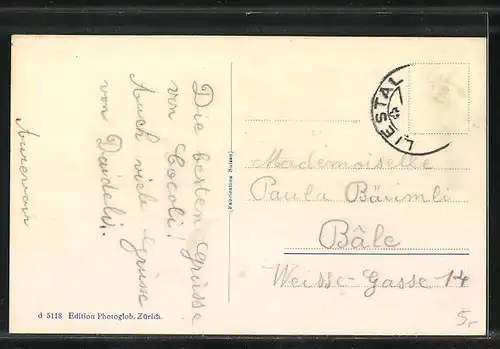 Die besten Grüsse
von Cocoli!
Auch viele Grüsse
von Daideli.
Aurevoir
LIESTAL
Mademoiselle
Paula Bäumli
Bâle
Weisse-Gasse 14
5,-
d 5118 Edition Photoglob, Zürich.